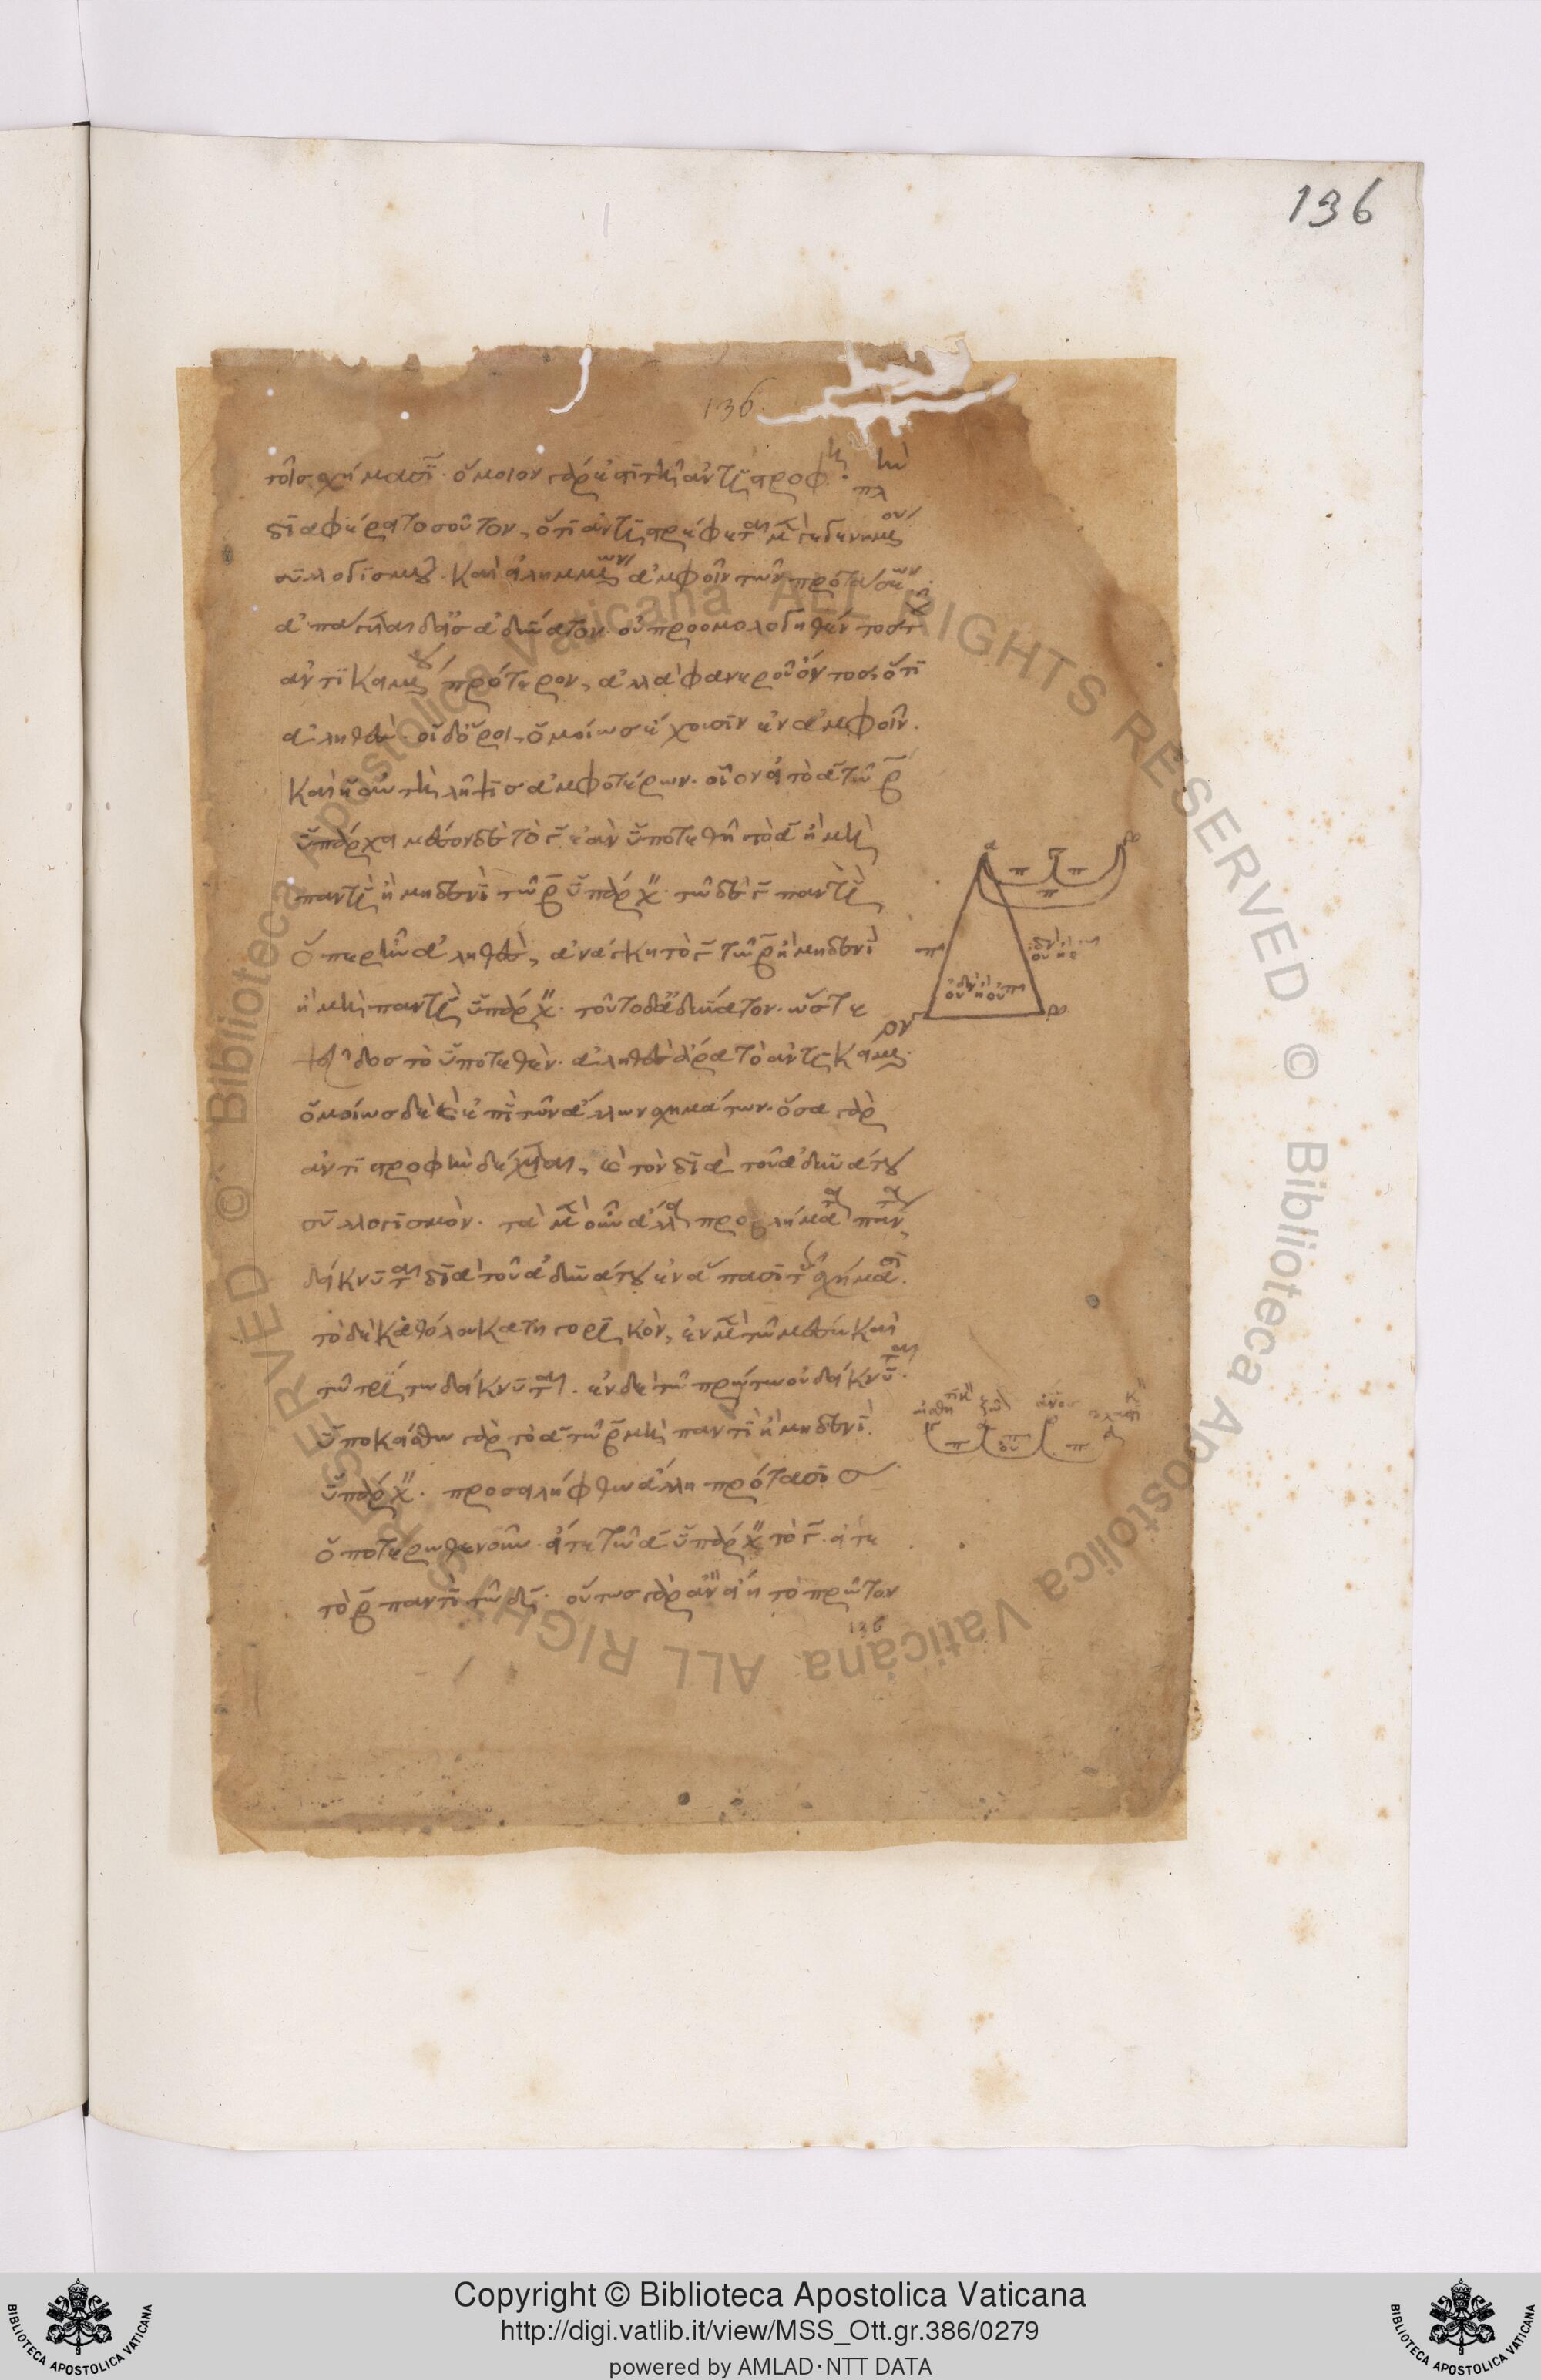 136
136
τοῖς σχήμασιν· ὅμοιον γάρ ἐστι τῇ ἀντιστροφῇ· πλὴν
διαφέρει τοσοῦτον, ὅτι ἀντιστρέφεται μὲν γεγενημένου
συλλογισμοῦ καὶ εἰλημμένων ἀμφοῖν τῶν προτάσεων·
ἀπάγεται δ' εἰς ἀδύνατον οὐ προομολογηθέντος τοῦ
ἀντικειμένου πρότερον, ἀλλὰ φανεροῦ ὄντος ὅτι
ἀληθές· οἱ δ' ὅροι, ὁμοίως ἔχουσιν ἐν ἀμφοῖν.
καὶ ἡ αὐτὴ λῆψις ἀμφοτέρων. οἷον εἰ τὸ α τῷ β
ὑπάρχει μέσον δὲ τὸ γ, ἐὰν ὑποτεθῇ τὸ α ἢ μὴ
παντὶ ἢ μηδενὶ τῷ β ὑπάρχειν· τῷ δὲ γ παντὶ
ὅπερ ἦν ἀληθές, ἀνάγκη τὸ γ τῷ β ἢ μηδενὶ
ἢ μὴ παντὶ ὑπάρχειν· τοῦτο δ' ἀδύνατον· ὥστε
ψεῦδος τὸ ὑποτεθέν· ἀληθὲς ἄρα τὸ ἀντικείμενον·
ὁμοίως δὲ καὶ ἐπὶ τῶν ἄλλων σχημάτων· ὅσα γὰρ
ἀντιστροφὴν δέχεται, καὶ τὸν διὰ τοῦ ἀδυνάτου
συλλογισμόν. τὰ μὲν οὖν ἄλλα προβλήματα πάντα
δείκνυται διὰ τοῦ ἀδυνάτου ἐν ἅπασι τοῖς σχήμασι.
τὸ δὲ καθόλου κατηγορικόν, ἐν μὲν τῷ μέσῳ καὶ
τῷ τρίτῳ δείκνυται. ἐν δὲ τῷ πρώτῳ οὐ δείκνυται.
ὑποκείσθω γὰρ τὸ α τῷ β μὴ παντὶ ἢ μηδενὶ
ὑπάρχειν. προσειλήφθω ἄλλη πρότασις
ὁποτερωθενοῦν· εἴτε τῷ α ὑπάρχειν τὸ γ· εἴτε
τὸ β παντὶ τῷ δ· οὕτως γὰρ ἂν εἴη τὸ πρῶτον
136
Copyright © Biblioteca Apostolica Vaticana
http://digi.vatlib.it/view/MSS_Ott.gr.386/0279
powered by AMLAD·NTT DATA